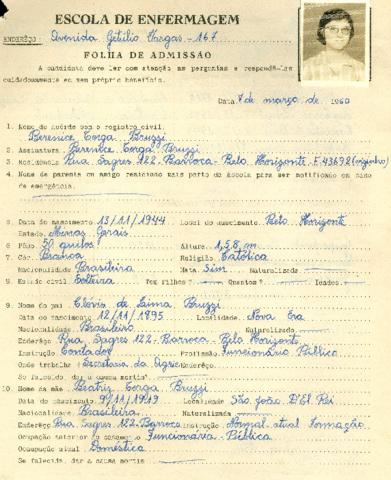 ESCOLA DE ENFERMAGEM
ENDERÊÇO: Avenida Getúlio Vargas - 167
FOLHA DE ADMISSÃO
A candidata deve ler com atenção as perguntas e respondê-las
cuidadosamente em seu próprio benefício.
Data 7 de março de 1960
1. Nome de acôrdo com o registro civil.
Berenice Corga Bruzzi
2. Assinatura Berenice Corga Bruzzi
3. Residência Rua Sagres 122 - Barroca - Belo Horizonte F. 43692 (vizinho)
4. Nome de parente ou amigo residindo mais perto da Escola para ser notificado em caso
de emergência.
5. Data do nascimento 13/11/1944 Local do nascimento Belo Horizonte
Estado Minas Gerais
6. Pêso 50 quilos Altura 1,58 m
7. Côr Branca Religião Católica
Nacionalidade Brasileira Nata Sim Naturalizada
8. Estado civil Solteira Tem filhos? Quantos? Idades
9. Nome do pai Clóvis de Lima Bruzzi
Data do nascimento 12/11/1895 Localidade Nova Era
Nacionalidade Brasileiro Naturalizado
Enderêço Rua Sagres 122 - Barroca - Belo Horizonte
Instrução Contador Profissão Funcionário Público
Onde trabalha Secretaria da Agric. Enderêço
Se falecido, dar a causa mortis
10. Nome da mãe Beatriz Corga Bruzzi
Data do nascimento 9/11/1919 Localidade São João D'El Rei
Nacionalidade Brasileira Naturalizada
Enderêço Rua Sagres 122 - Barroca Instrução Normal - atual Formação
Ocupação anterior ao casamento Funcionária - Pública
Ocupação atual Doméstica
Se falecida, dar a causa mortis